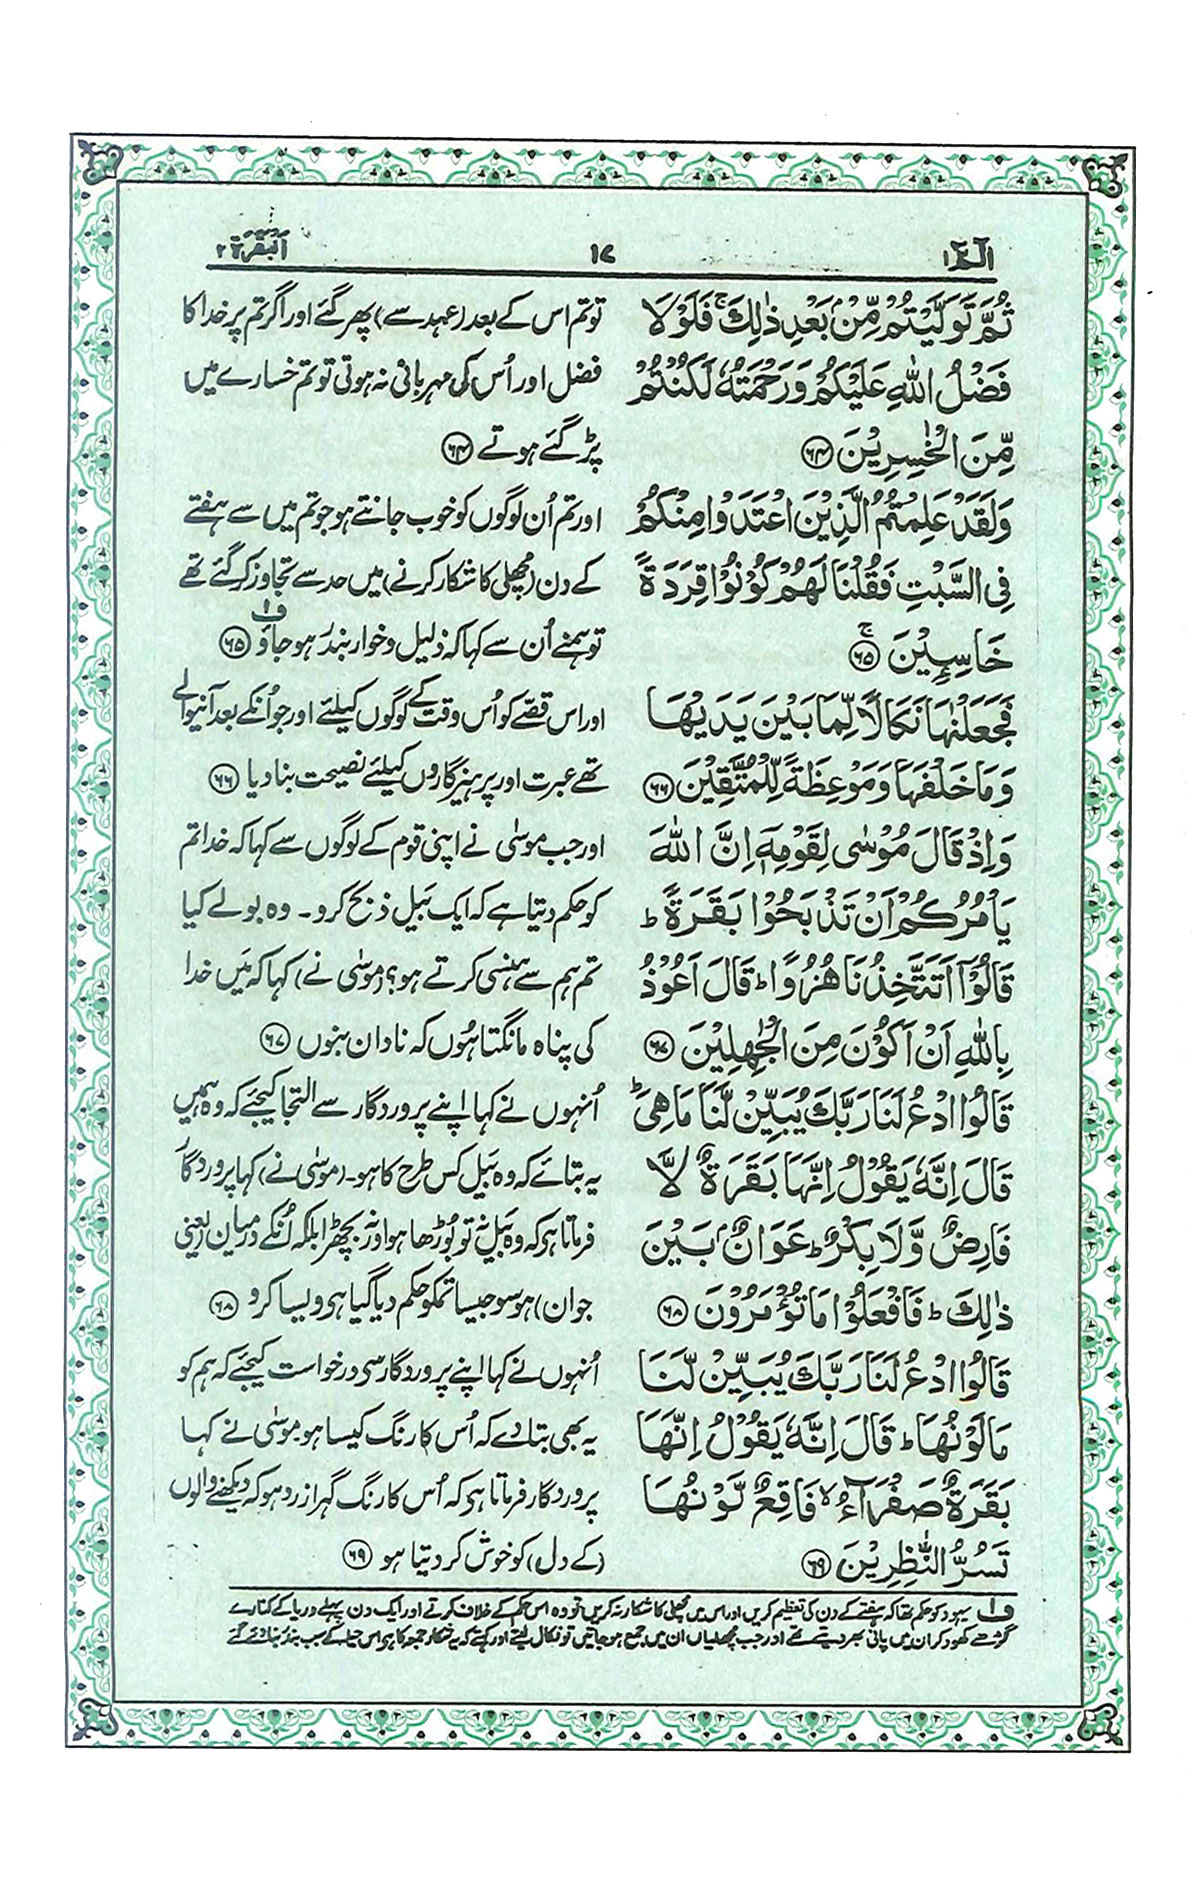 الٓمّٓ ۱
۱۷
اَلْبَقَرَة ۲
ثُمَّ تَوَلَّیْتُمْ مِّنْۢ بَعْدِ ذٰلِكَ ۚ فَلَوْ لَا
فَضْلُ اللّٰهِ عَلَیْكُمْ وَ رَحْمَتُهٗ لَكُنْتُمْ
مِّنَ الْخٰسِرِیْنَ ﴿۶۴﴾
وَ لَقَدْ عَلِمْتُمُ الَّذِیْنَ اعْتَدَوْا مِنْكُمْ
فِی السَّبْتِ فَقُلْنَا لَهُمْ كُوْنُوْا قِرَدَةً
خَاسِـِٕیْنَ ۚ ﴿۶۵﴾
فَجَعَلْنٰهَا نَكَالًا لِّمَا بَیْنَ یَدَیْهَا
وَ مَا خَلْفَهَا وَ مَوْعِظَةً لِّلْمُتَّقِیْنَ ﴿۶۶﴾
وَ اِذْ قَالَ مُوْسٰی لِقَوْمِهٖۤ اِنَّ اللّٰهَ
یَاْمُرُكُمْ اَنْ تَذْبَحُوْا بَقَرَةً ؕ
قَالُوْۤا اَتَتَّخِذُنَا هُزُوًا ؕ قَالَ اَعُوْذُ
بِاللّٰهِ اَنْ اَكُوْنَ مِنَ الْجٰهِلِیْنَ ﴿۶۷﴾
قَالُوا ادْعُ لَنَا رَبَّكَ یُبَیِّنْ لَّنَا مَا هِیَ ؕ
قَالَ اِنَّهٗ یَقُوْلُ اِنَّهَا بَقَرَةٌ لَّا
فَارِضٌ وَّ لَا بِكْرٌ ؕ عَوَانٌۢ بَیْنَ
ذٰلِكَ ؕ فَافْعَلُوْا مَا تُؤْمَرُوْنَ ﴿۶۸﴾
قَالُوا ادْعُ لَنَا رَبَّكَ یُبَیِّنْ لَّنَا
مَا لَوْنُهَا ؕ قَالَ اِنَّهٗ یَقُوْلُ اِنَّهَا
بَقَرَةٌ صَفْرَآءُ ۙ فَاقِعٌ لَّوْنُهَا
تَسُرُّ النّٰظِرِیْنَ ﴿۶۹﴾
تو تم اس کے بعد (عہد سے) پھر گئے اور اگر تم پر خدا کا
فضل اور اُس کی مہربانی نہ ہوتی تو تم خسارے میں
پڑ گئے ہوتے ﴿۶۴﴾
اور تم اُن لوگوں کو خوب جانتے ہو جو تم میں سے ہفتے
کے دن (مچھلی کا شکار کرنے) میں حد سے تجاوز کر گئے تھے
تو ہمنے اُن سے کہا کہ ذلیل و خوار بندر ہو جاؤ ف۱ ﴿۶۵﴾
اور اس قصّے کو اُس وقت کے لوگوں کیلئے اور جو اُنکے بعد آنیوالے
تھے عبرت اور پرہیزگاروں کیلئے نصیحت بنا دیا ﴿۶۶﴾
اور جب موسٰی نے اپنی قوم کے لوگوں سے کہا کہ خدا تم
کو حکم دیتا ہے کہ ایک بَیل ذبح کرو۔ وہ بولے کیا
تم ہم سے ہنسی کرتے ہو؟ (موسٰی نے) کہا کہ مَیں خدا
کی پناہ مانگتا ہُوں کہ نادان بنوں ﴿۶۷﴾
اُنہوں نے کہا اپنے پروردگار سے التجا کیجئے کہ وہ ہمیں
یہ بتائے کہ وہ بَیل کس طرح کا ہو۔ (موسٰی نے) کہا پروردگار
فرماتا ہی کہ وہ بَیل نہ تو بُوڑھا ہو اور نہ بچھڑا بلکہ اُنکے درمیان (یعنی
جوان) ہو سو جیسا تمکو حکم دیا گیا ہی ویسا کرو ﴿۶۸﴾
اُنہوں نے کہا اپنے پروردگار سی درخواست کیجئے کہ ہم کو
یہ بھی بتادے کہ اُس کا رنگ کیسا ہو۔ موسٰی نے کہا
پروردگار فرماتا ہی کہ اُس کا رنگ گہرا زرد ہو کہ دیکھنے والوں
(کے دل) کو خوش کر دیتا ہو ﴿۶۹﴾
ف۱ یہود کو حکم تھا کہ ہفتے کے دن کی تعظیم کریں اور اس میں مچھلی کا شکار نہ کریں تو وہ اس حکم کے خلاف کرتے اور ایک دن پہلے دریا کے کنارے
گڑھے کھود کر ان میں پانی بھر دیتے تھے اور جب مچھلیاں ان میں جمع ہو جاتیں تو نکال لیتے اور کہتے کہ یہ شکار جمعہ کا ہی اس حیلہ کے سبب بندر بنا دئے گئے